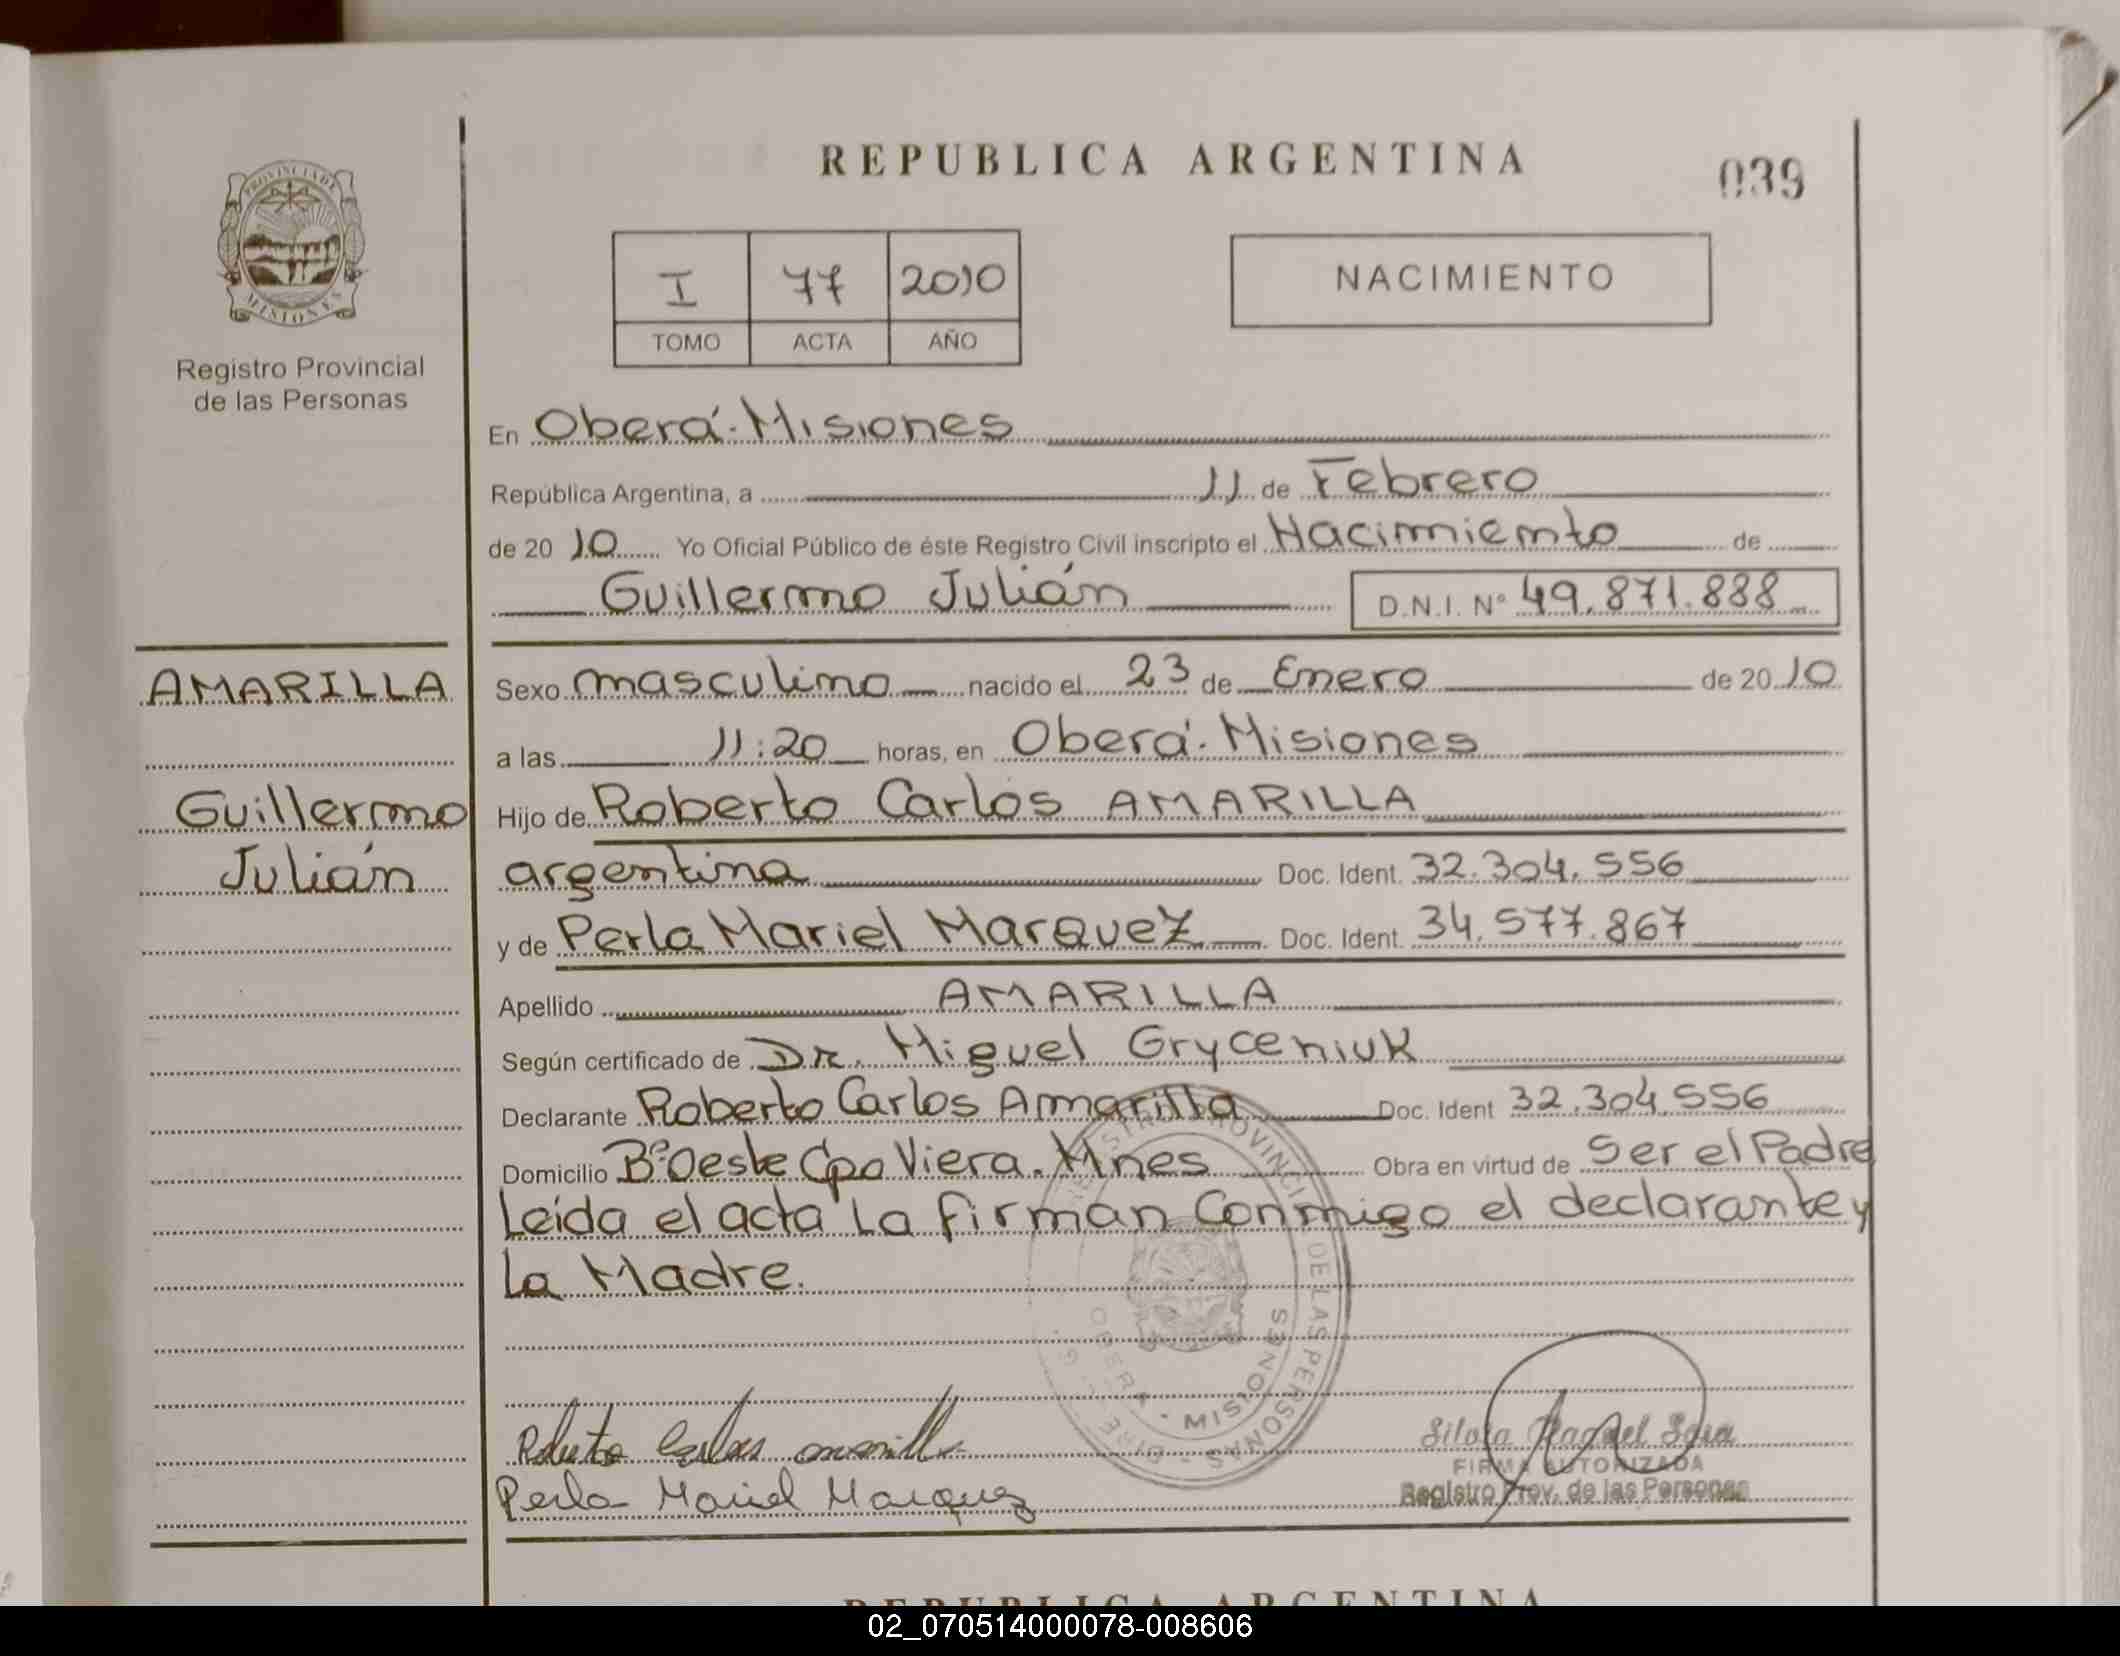 REPUBLICA ARGENTINA
039
PROVINCIA DE
MISIONES
Registro Provincial
de las Personas
I 77 2010
TOMO ACTA AÑO
NACIMIENTO
En Oberá. Misiones
República Argentina, a 11 de Febrero
de 20 10 Yo Oficial Público de éste Registro Civil inscripto el Nacimiento de
Guillermo Julián D.N.I. Nº 49.871.888
AMARILLA
Guillermo
Julián
Sexo masculino nacido el 23 de Enero de 20 10
a las 11:20 horas, en Oberá. Misiones
Hijo de Roberto Carlos AMARILLA
argentina Doc. Ident. 32.304.556
y de Perla Mariel Marquez Doc. Ident. 34.577.867
Apellido AMARILLA
Según certificado de Dr. Miguel Gryceniuk
Declarante Roberto Carlos Amarilla Doc. Ident 32.304.556
Domicilio Bº Oeste Cpo Viera. Mnes Obra en virtud de Ser el Padre
Leída el acta La firman Conmigo el declarante y
la Madre.
REGISTRO PROVINCIAL DE LAS PERSONAS
OBERA - MISIONES
Roberto Carlos Amarilla
Perla Mariel Marquez
Silvia Raquel
FIRMA AUTORIZADA
Registro Prov. de las Personas
REPUBLICA ARGENTINA
02_070514000078-008606